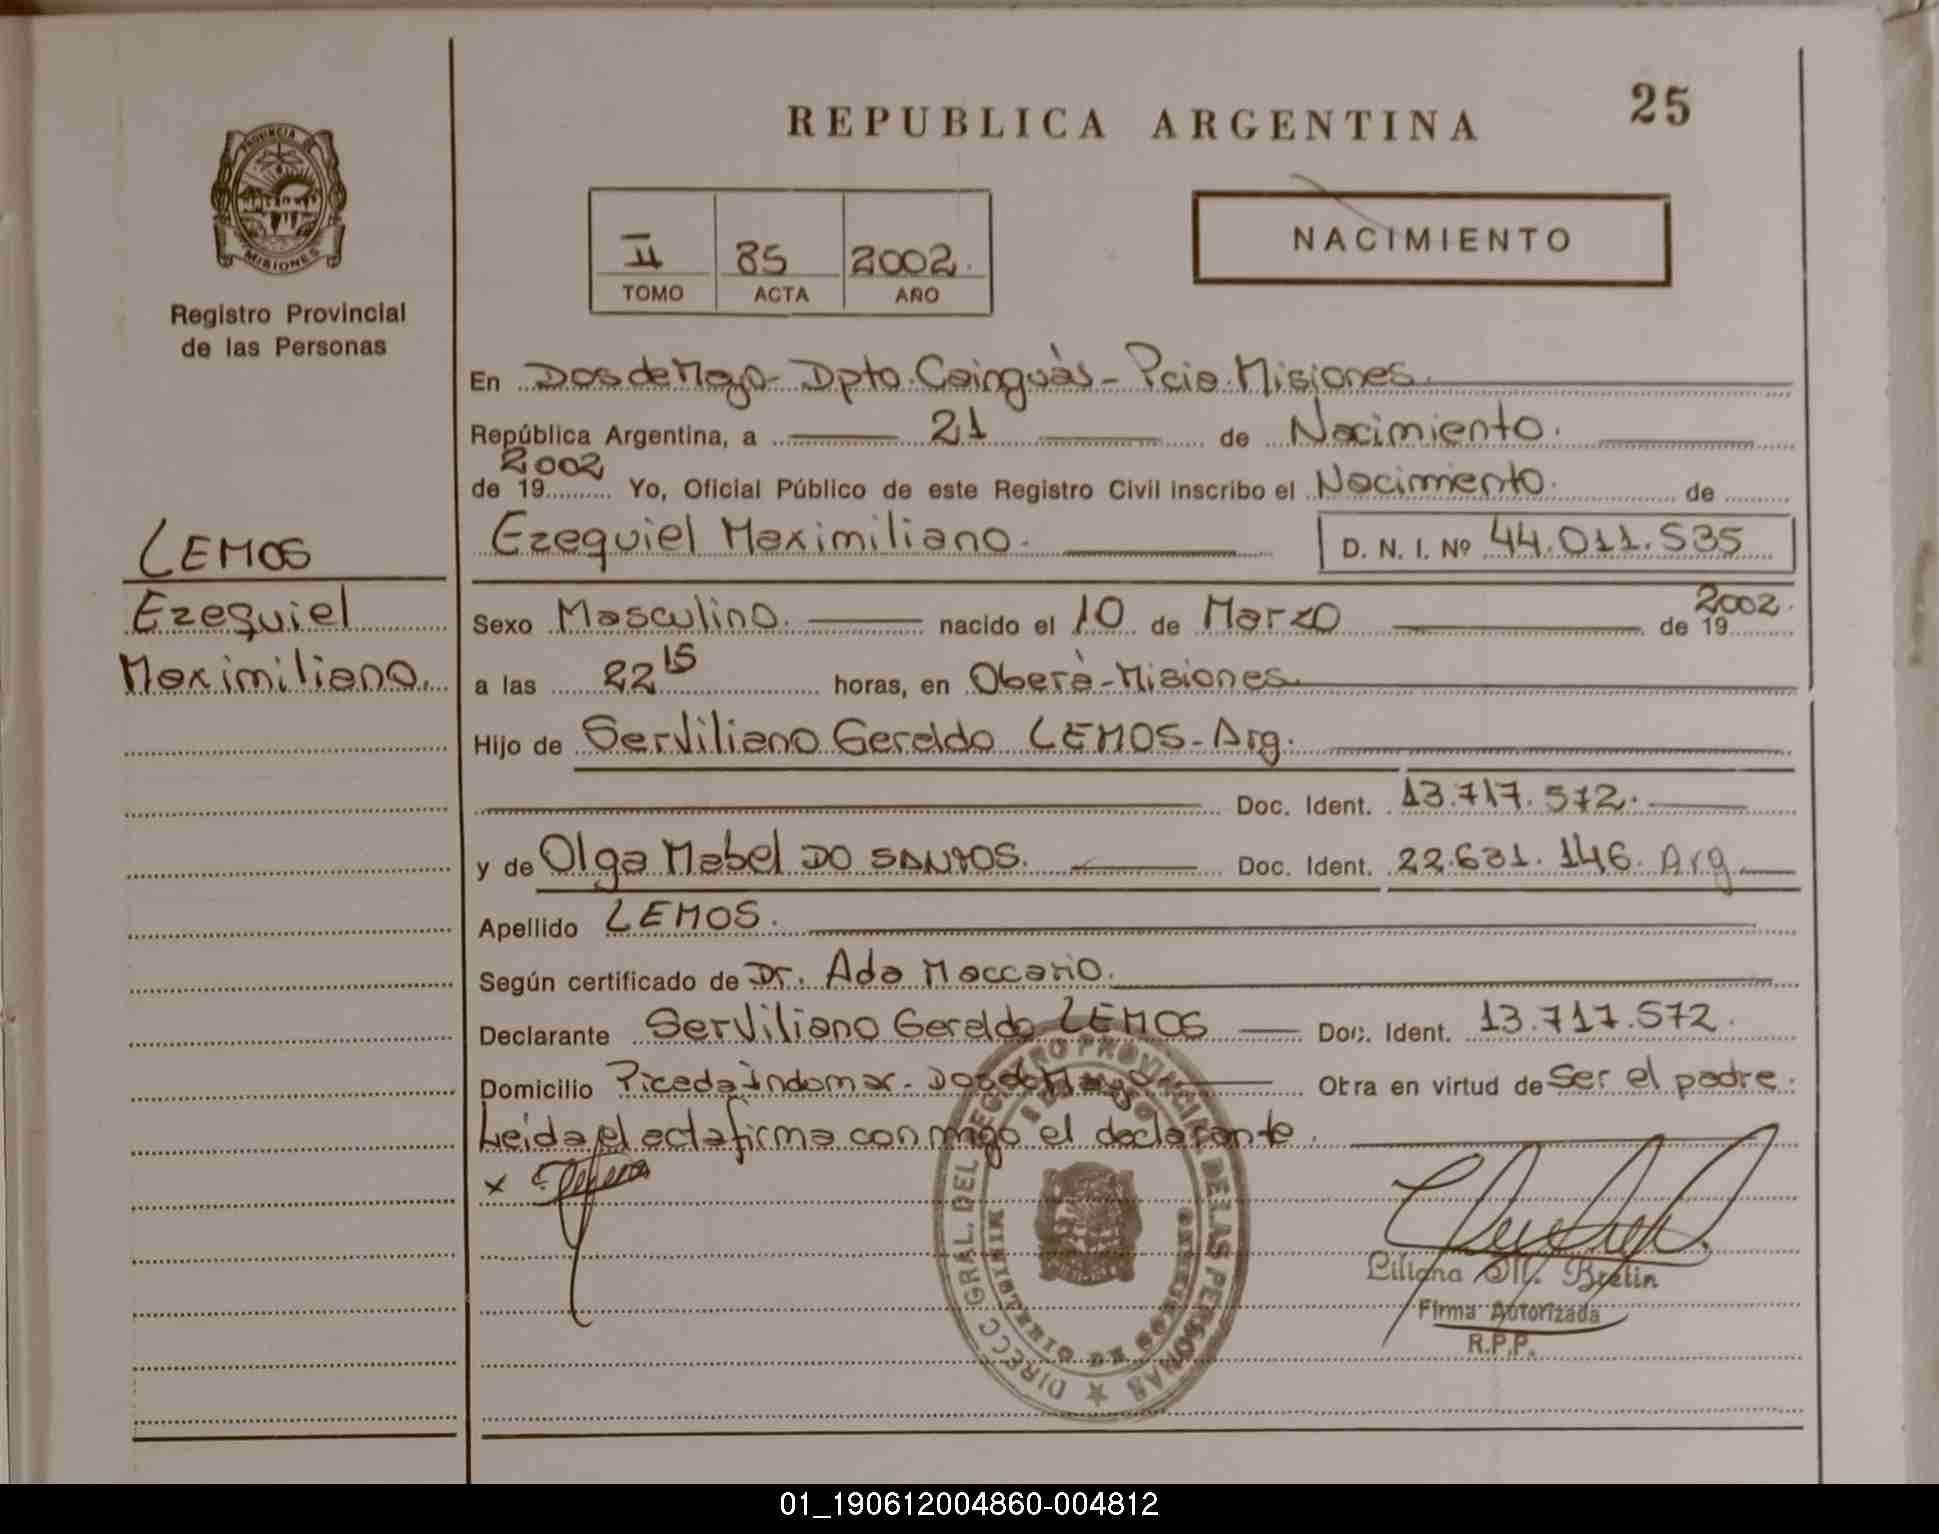 REPUBLICA ARGENTINA
25
PROVINCIA DE
MISIONES
Registro Provincial
de las Personas
II 85 2002.
TOMO ACTA AÑO
NACIMIENTO
En Dos de Mayo - Dpto. Cainguàs - Pcia. Misiones.
República Argentina, a 21 de Nacimiento.
2002
de 19 Yo, Oficial Público de este Registro Civil inscribo el Nacimiento. de
Ezequiel Maximiliano. D. N. I. Nº 44.011.535
LEMOS
Ezequiel
Maximiliano.
Sexo Masculino. nacido el 10 de Marzo de 19 2002.
a las 22 15 horas, en Oberà - Misiones.
Hijo de Serviliano Geraldo LEMOS - Arg.
Doc. Ident. 13.717.572.
y de Olga Mabel DO SANTOS. Doc. Ident. 22.631.146. Arg
Apellido LEMOS.
Según certificado de Dr. Ada Maccario.
Declarante Serviliano Geraldo LEMOS Doc. Ident. 13.717.572.
Domicilio Picada Indomar - Dos de Mayo Otra en virtud de Ser el padre.
Leida el acta firma con migo el declarante.
x
DIRECC GRAL. DEL REGISTRO PROVINCIAL DE LAS PERSONAS
Liliana M. Brelin
Firma Autorizada
R.P.P.
01_190612004860-004812